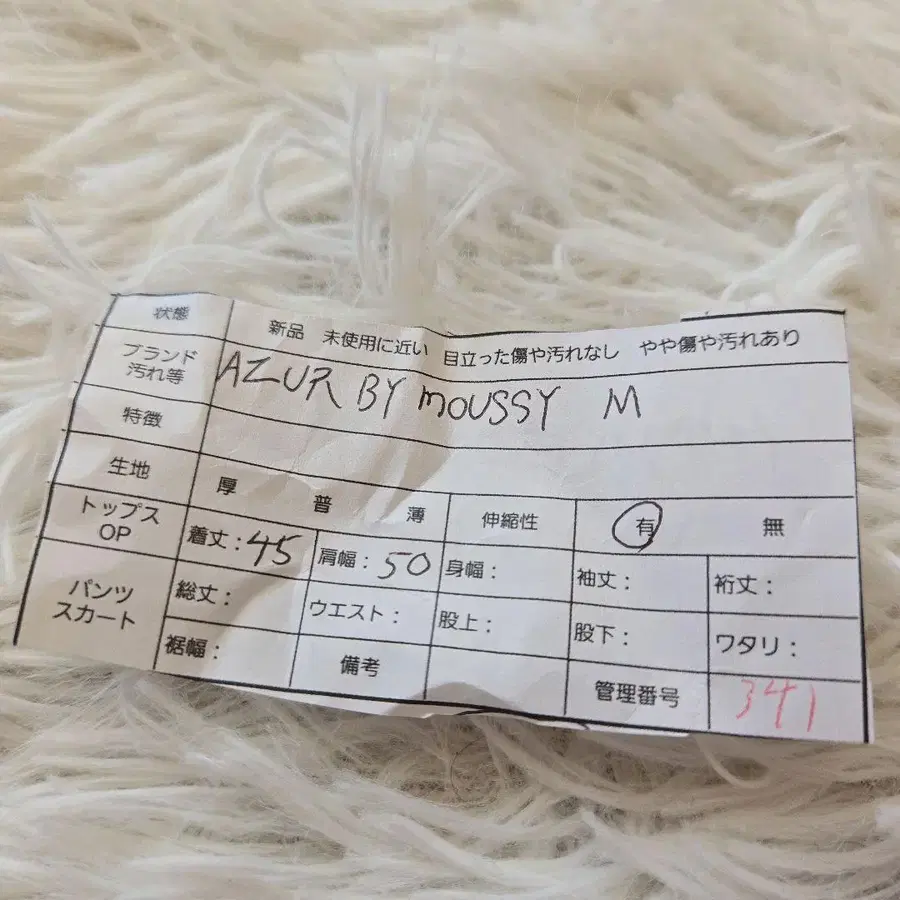 状態 新品 未使用に近い 目立った傷や汚れなし やや傷や汚れあり
ブランド
汚れ等 AZUR BY moussy M
特徴
生地 厚 普 薄 伸縮性 有 無
トップス
OP 着丈:45 肩幅:50 身幅: 袖丈: 裄丈:
パンツ
スカート 総丈: ウエスト: 股上: 股下: ワタリ:
裾幅: 備考 管理番号 341